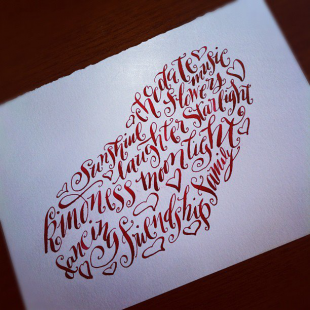 chocolate
music
Sunshine
flowers
laughter
starlight
kindness
moonlight
dancing
friendship
family